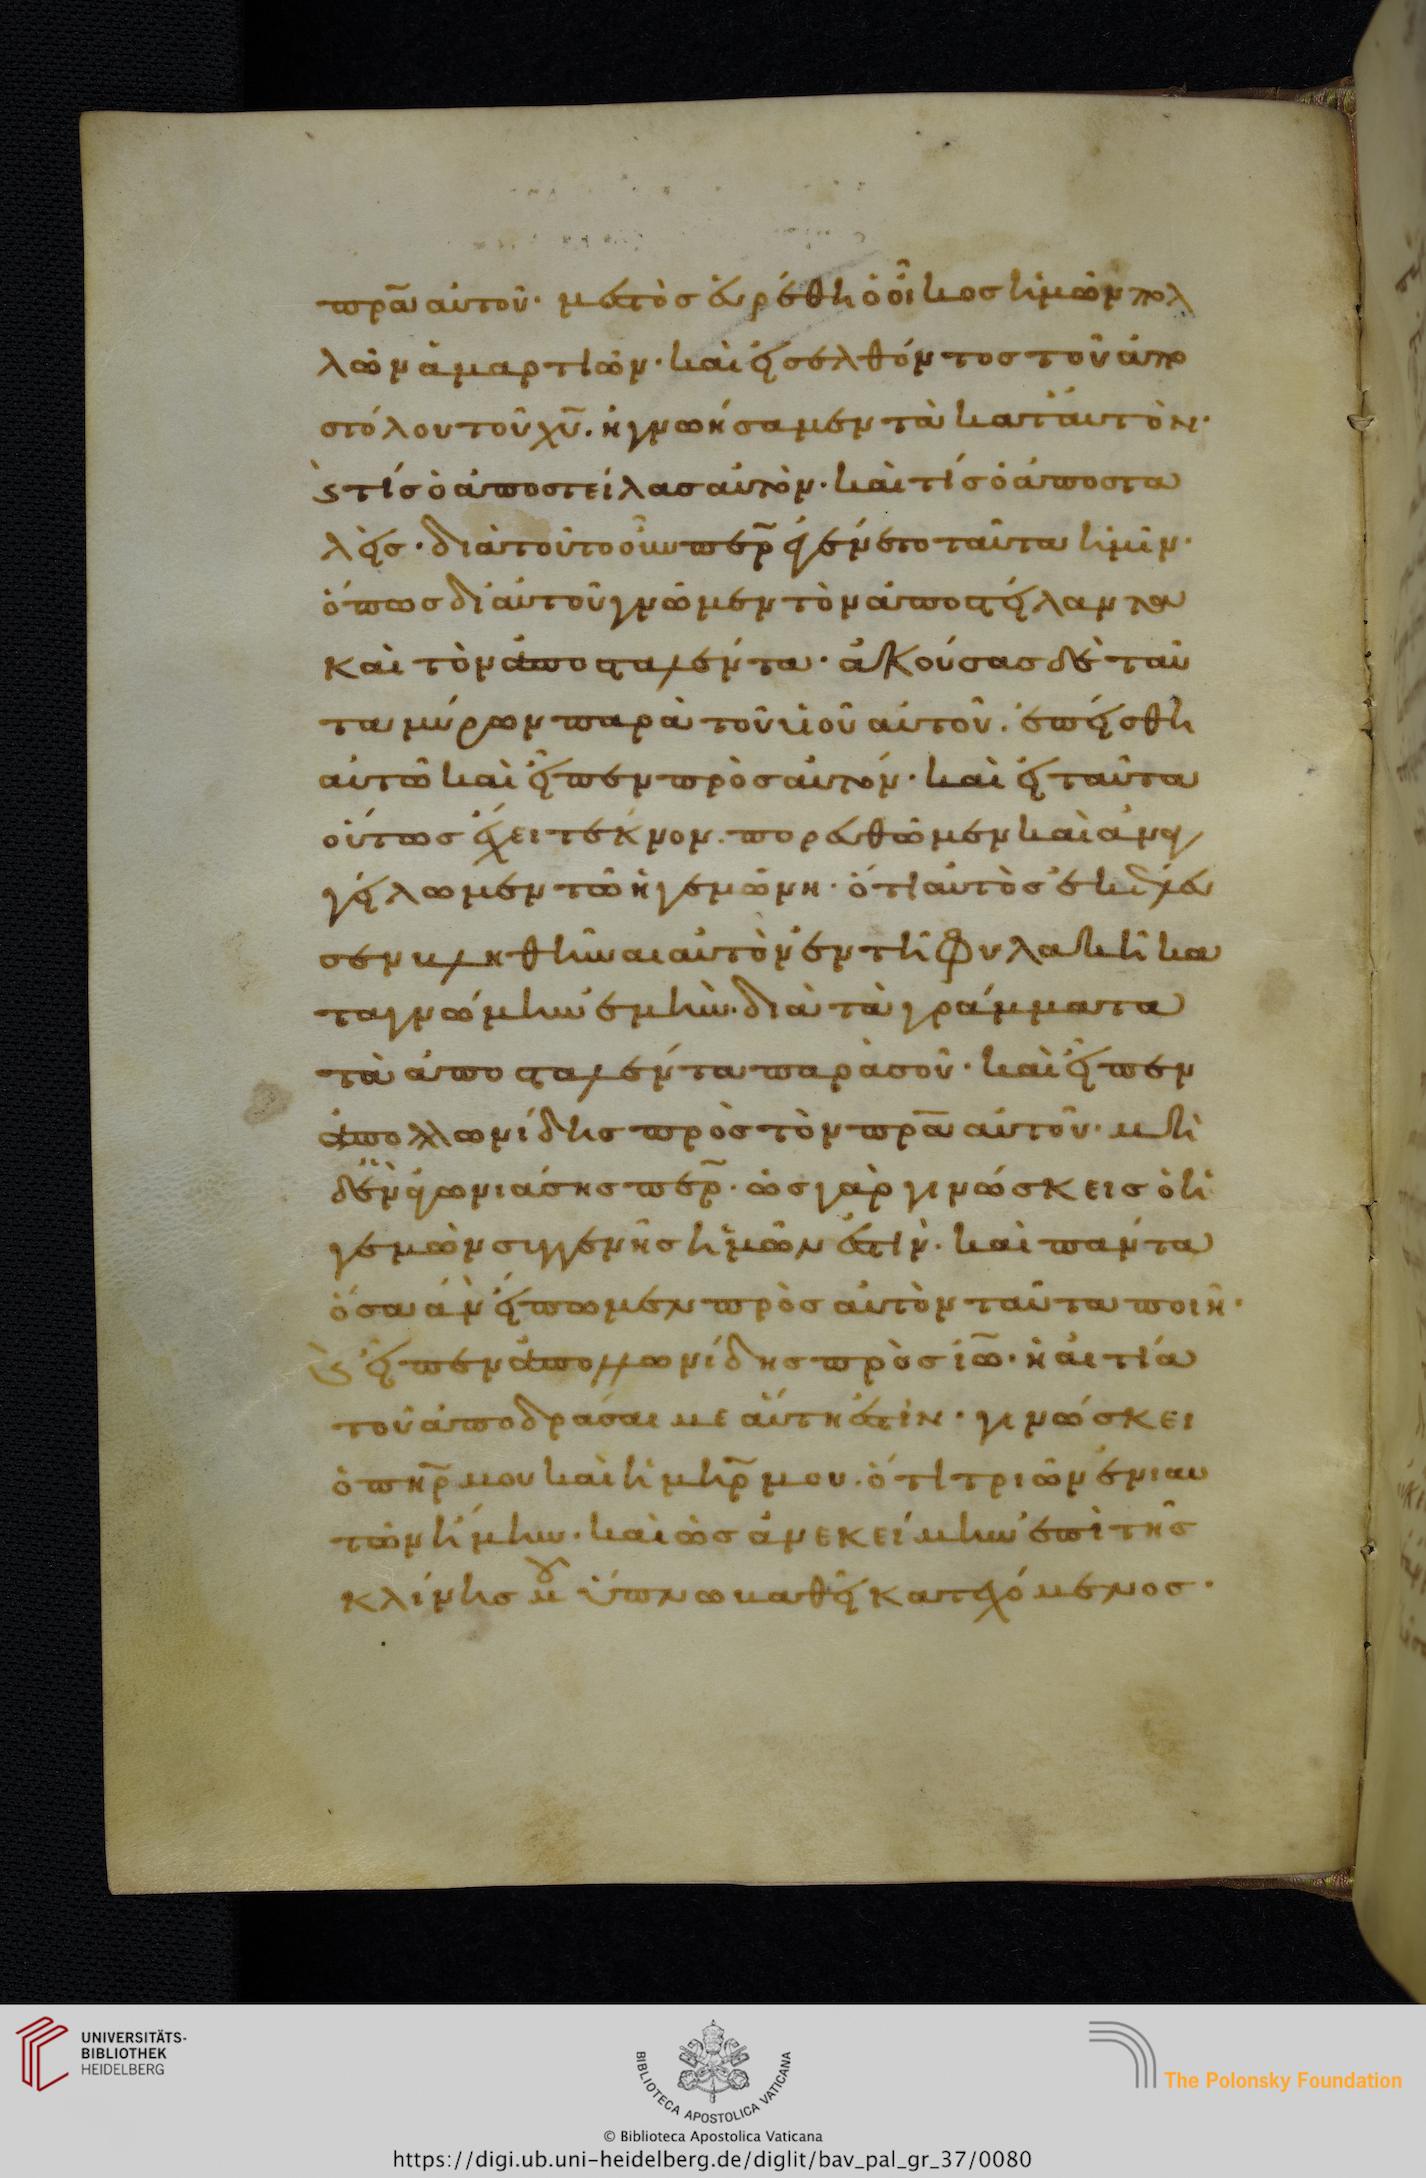 πρ̅α αὐτοῦ· μεστὸσ εὑρέθη ὁ οἶκοσ ἡμῶν πολ
λῶν ἁμαρτιῶν· καὶ εἰσελθόντοσ τοῦ ἀπο
στόλου τοῦ χυ̅. ἠγνωήσαμεν τὰ κατ' αὐτὸν·
ϛ τίσ ὁ ἀποστείλασ αὐτὸν· καὶ τίσ ὁ ἀποστα
λεὶσ· διὰ τοῦτο οὖν περ̅ ἐγένετο ταῦτα ἡμῖν·
ὅπωσ δι' αὐτοῦ γνῶμεν τὸν ἀποστείλαντα
καὶ τὸν ἀποσταλέντα· ἀκούσασ δὲ ταῦ
τα μύρων παρὰ τοῦ υἱοῦ αὐτοῦ. ἐπείσθη
αὐτῶ καὶ εἶπεν πρὸσ αὐτόν· καὶ εἰ ταῦτα
οὕτωσ ἔχει τέκνον. πορευθῶμεν καὶ ἀναγ
γείλωμεν τῶ ἡγεμῶνη· ὅτι αὐτὸσ ἐκέλευ
σεν κληθῆναι αὐτὸν ἐν τῆ φυλακῆ κα
τα γνώμην ἐμὴν· διὰ τὰ γράμματα
τὰ ἀποσταλέντα παρὰ σοῦ· καὶ εἶπεν
ἀπολλωνίδησ πρὸσ τὸν πρ̅α αὐτοῦ· μὴ
δὲν ἀγωνιάσησ περ̅· ὡσ γὰρ γινώσκεισ ὁ ἡ
γεμὼν συγγενῆσ ἡμῶν ἐστὶν· καὶ πάντα
ὅσα ἂν εἴπωμεν πρὸσ αὐτὸν ταῦτα ποιῆ·
ϛ εἶπεν ἀπολλωνίδησ πρὸσ ἰω̅· ἡ αἰτία
τοῦ ἀποδράσαι με αὕτη ἐστὶν· γινώσκει
ὁ πηρ̅ μου καὶ ἡ μηρ̅ μου· ὅτι τριῶν ἐνιαυ
τῶν ἤμην· καὶ ὡσ ἀνεκείμην ἐπὶ τῆσ
κλίνησ μου ὕπνω καθεῖ κατεχόμενοσ·
UNIVERSITÄTS-
BIBLIOTHEK
HEIDELBERG
BIBLIOTECA APOSTOLICA VATICANA
The Polonsky Foundation
© Biblioteca Apostolica Vaticana
https://digi.ub.uni-heidelberg.de/diglit/bav_pal_gr_37/0080